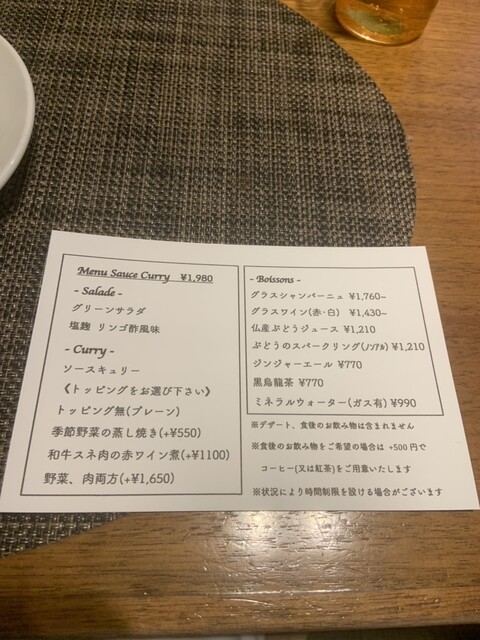 Menu Sauce Curry ¥1,980
- Salade -
グリーンサラダ
塩麹 リンゴ酢風味
- Curry -
ソースキュリー
《トッピングをお選び下さい》
トッピング無(プレーン)
季節野菜の蒸し焼き(+¥550)
和牛スネ肉の赤ワイン煮(+¥1100)
野菜、肉両方(+¥1,650)
- Boissons -
グラスシャンパーニュ ¥1,760~
グラスワイン(赤・白) ¥1,430~
仏産ぶどうジュース ¥1,210
ぶどうのスパークリング(ノンアル) ¥1,210
ジンジャーエール ¥770
黒烏龍茶 ¥770
ミネラルウォーター(ガス有) ¥990
※デザート、食後のお飲み物は含まれません
※食後のお飲み物をご希望の場合は +500円で
コーヒー(又は紅茶)をご用意いたします
※状況により時間制限を設ける場合がございます